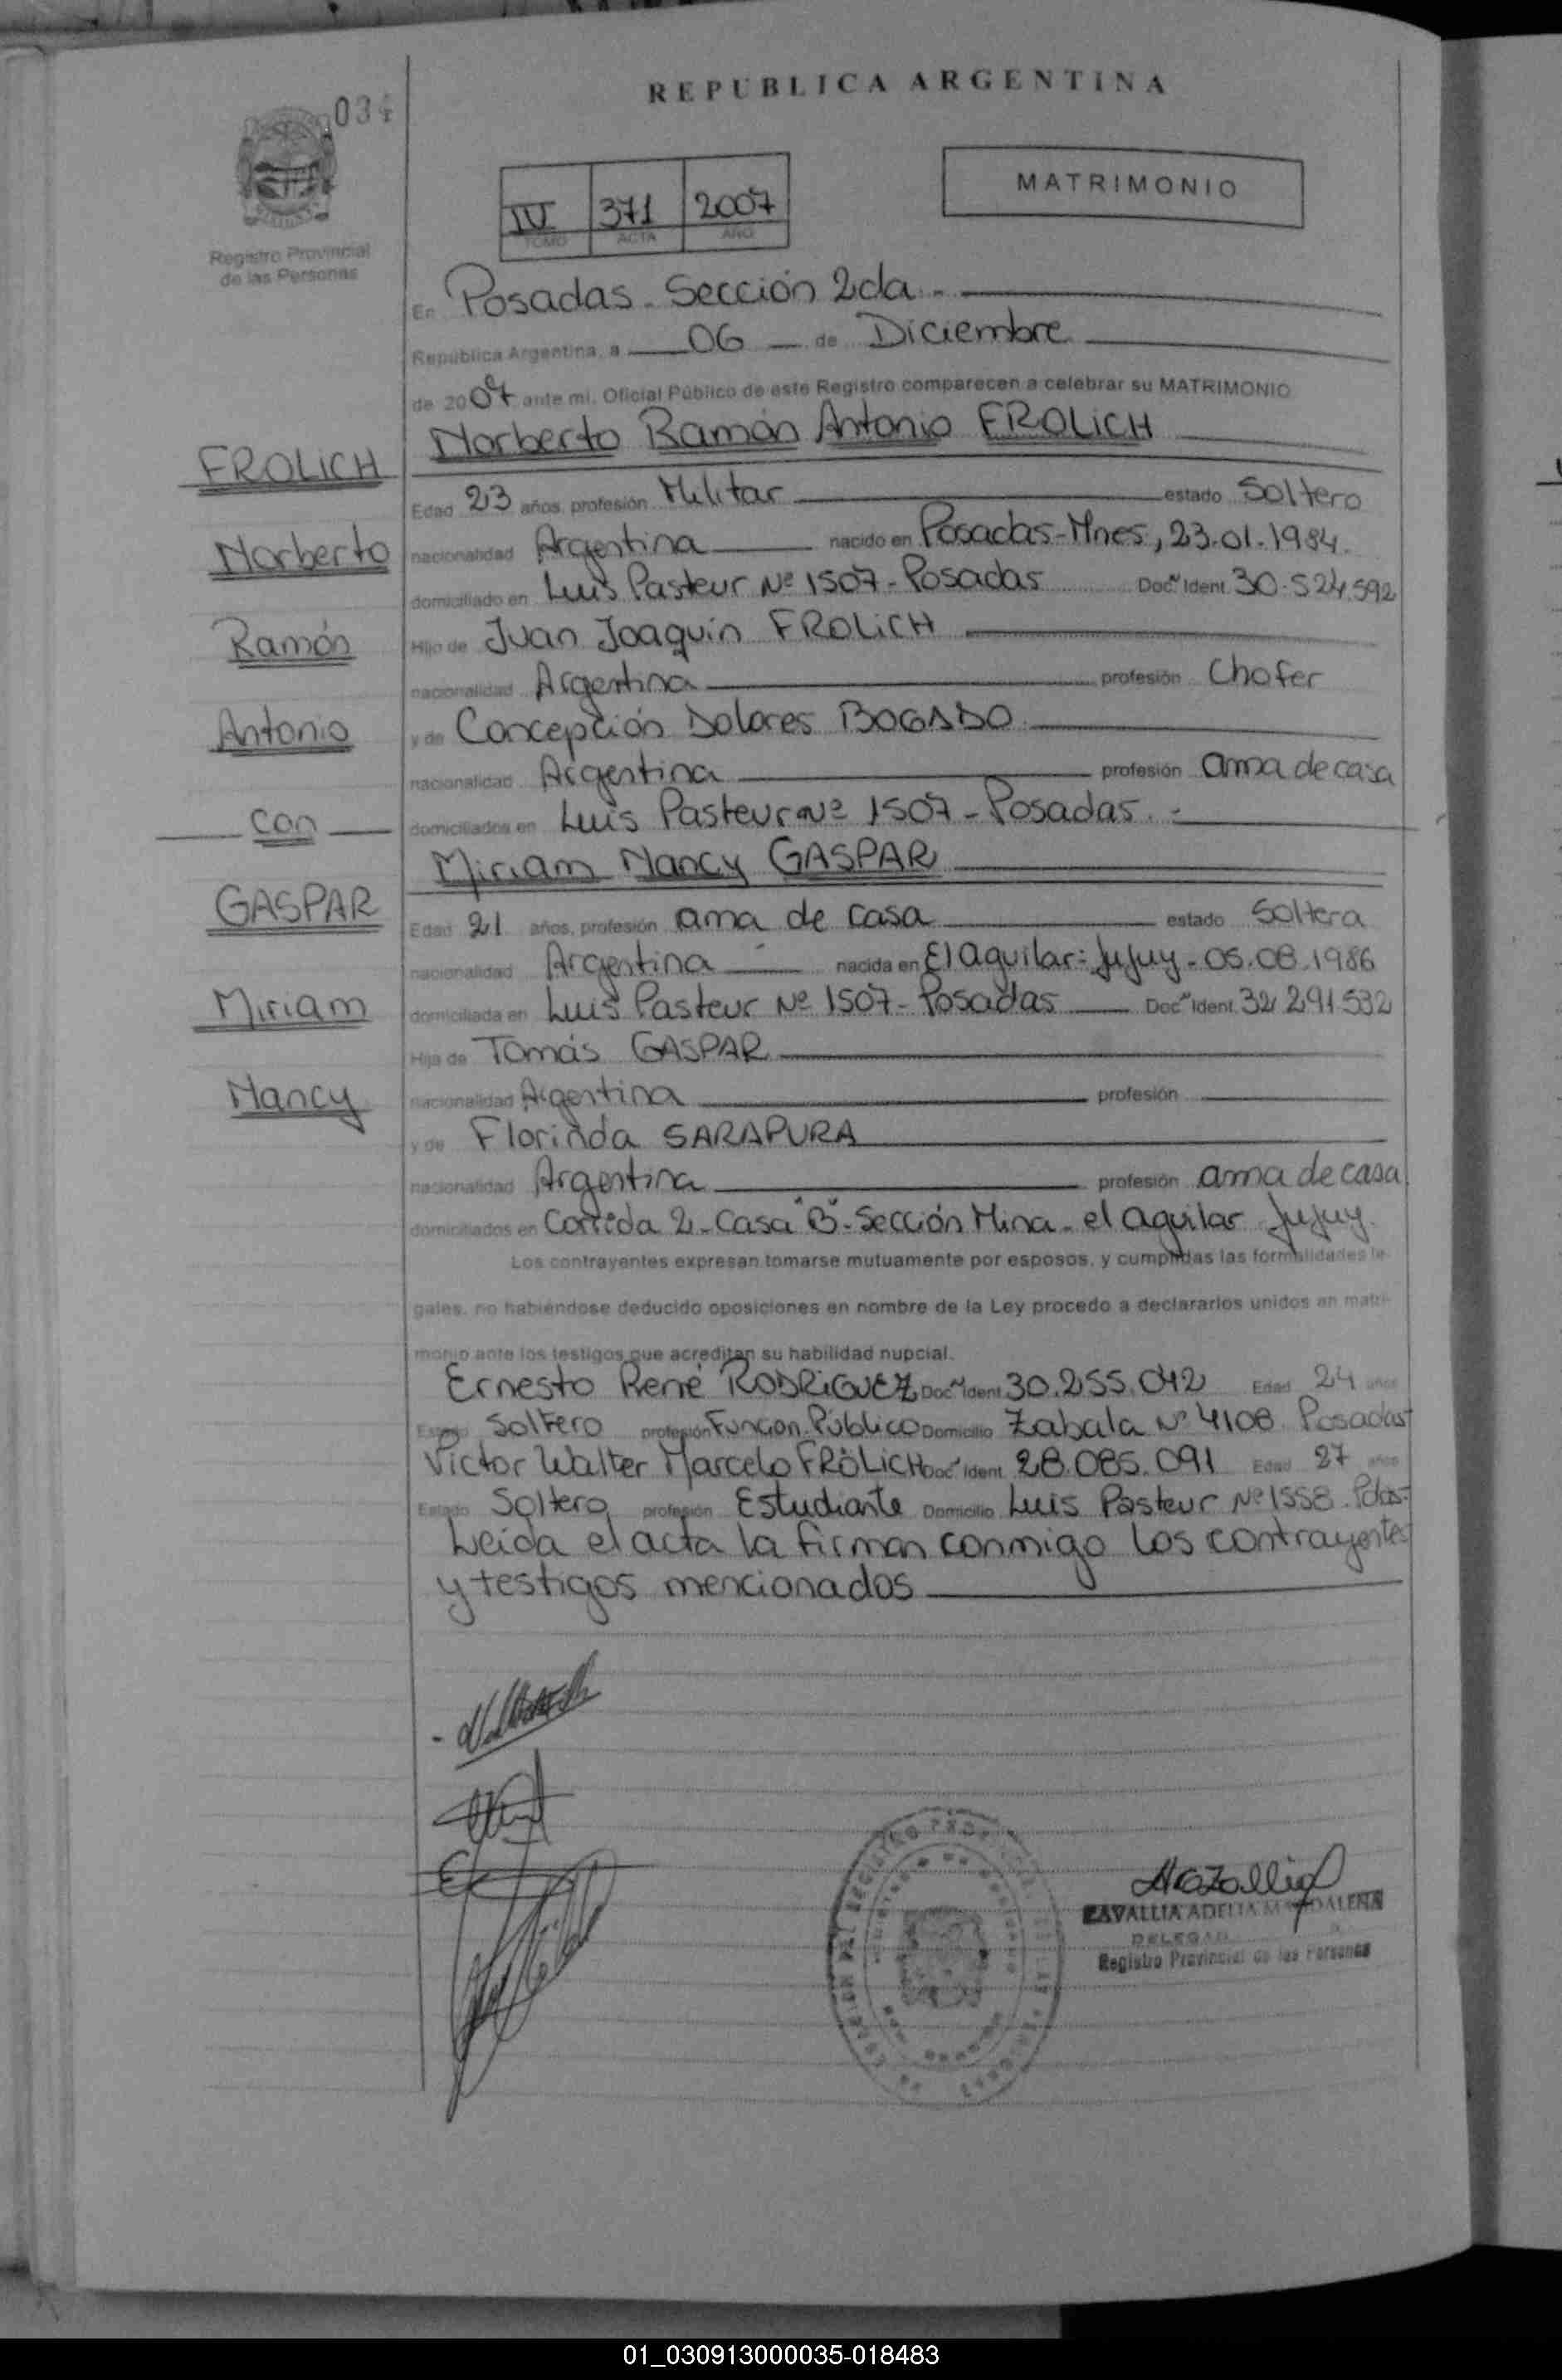 034
REPUBLICA ARGENTINA
MATRIMONIO
IV 371 2007
TOMO ACTA AÑO
Registro Provincial
de las Personas
En Posadas - Sección 2da.-
República Argentina, a 06 de Diciembre
de 2007 ante mi, Oficial Público de este Registro comparecen a celebrar su MATRIMONIO
Norberto Ramón Antonio FROLICH
FROLICH
Edad 23 años, profesión Militar estado Soltero
Norberto
nacionalidad Argentina nacido en Posadas-Mnes, 23.01.1984.
domiciliado en Luis Pasteur Nº 1507 - Posadas Doc. Ident. 30.524.592
Ramón
Hijo de Juan Joaquín FROLICH
nacionalidad Argentina profesión Chofer
Antonio
y de Concepción Dolores BOGADO
nacionalidad Argentina profesión ama de casa
con
domiciliados en Luis Pasteur Nº 1507 - Posadas.-
Miriam Nancy GASPAR
GASPAR
Edad 21 años, profesión ama de casa estado Soltera
nacionalidad Argentina nacida en El aguilar - Jujuy - 05.08.1986
Miriam
domiciliada en Luis Pasteur Nº 1507 - Posadas Doc. Ident. 32.291.532
Hija de Tomás GASPAR
Nancy
nacionalidad Argentina profesión
y de Florinda SARAPURA
nacionalidad Argentina profesión ama de casa
domiciliados en Corrida 2 - Casa "B" - Sección Mina - el aguilar Jujuy.
Los contrayentes expresan tomarse mutuamente por esposos, y cumplidas las formalidades le-
gales, no habiéndose deducido oposiciones en nombre de la Ley procedo a declararlos unidos en matri-
monio ante los testigos que acreditan su habilidad nupcial.
Ernesto René RODRIGUEZ Doc. Ident. 30.255.042 Edad 24 años
Estado Soltero profesión Funcion. Público Domicilio Zabala Nº 4108 Posadas-
Victor Walter Marcelo FRÖLICH Doc. Ident. 28.085.091 Edad 27 años
Estado Soltero profesión Estudiante Domicilio Luis Pasteur Nº 1558 - Pdas-
Leída el acta la firman conmigo los contrayentes
y testigos mencionados
ZAVALLIA ADELIA MAGDALENA
DELEGADA
Registro Provincial de las Personas
01_030913000035-018483